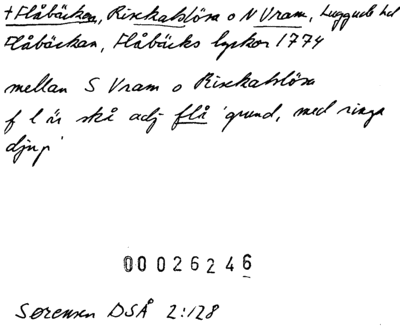 + Flåbäcken, Risekatslösa o N Vram, Luggude hd
Flåbäckan, Flåbäcks lyckor 1774
mellan S Vram o Risekatslösa
f l är skå adj flå 'grund, med ringa
djup'
00026246
Sørensen DSÅ 2:128